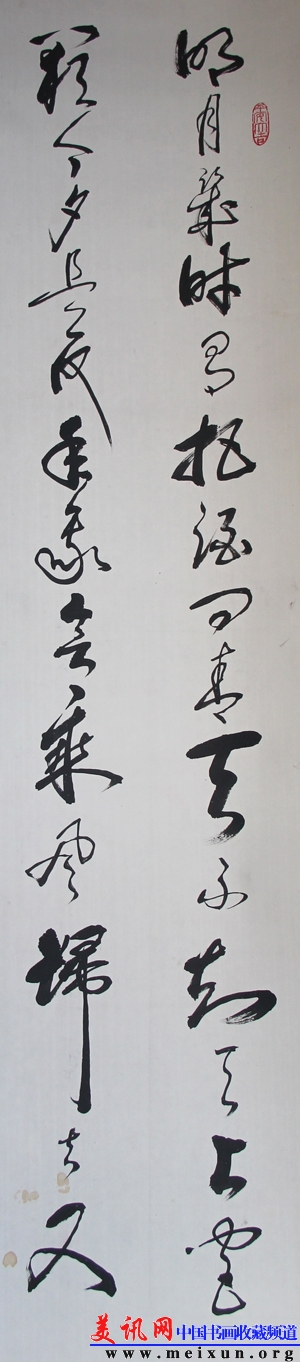 明月幾時有把酒問青天不知天上宮
闕今夕是何年我欲乘風歸去又
美讯网 中国书画收藏频道
www.meixun.org